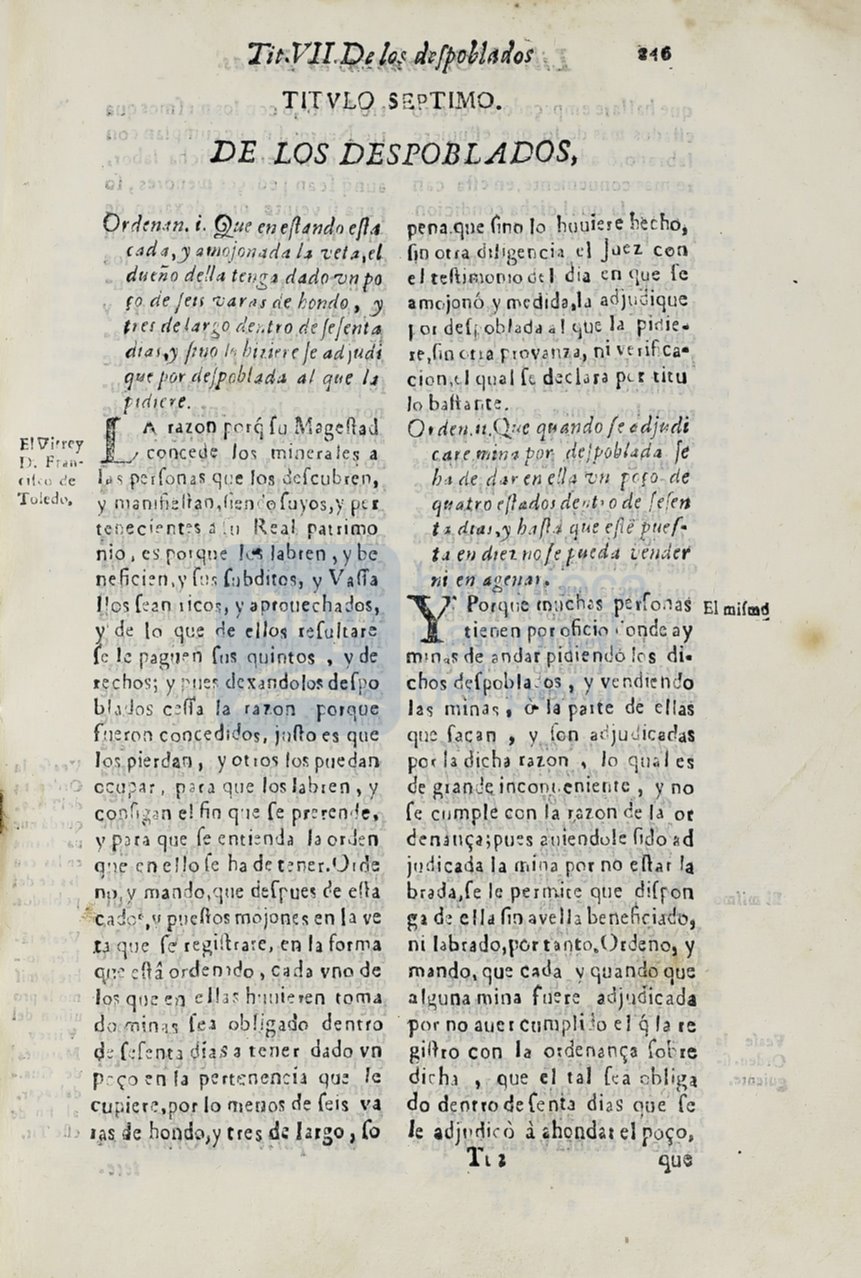 Tit.VII.De los despoblados 246
TITVLO SEPTIMO.
DE LOS DESPOBLADOS,
Ordenan. i. Que en estando esta
cada, y amojonada la veta, el
dueño della tenga dado vn po
ço de seis varas de hondo, y
tres de largo dentro de sesenta
dias, y sino lo hiziere se adjudi
que por despoblada al que la
pidiere.
El Virrey
D. Fran-
cisco de
Toledo,
LA razon porq̃ su Magestad
concede los minerales a
las personas que los descubren,
y manifiestan, siendo suyos, y per
tenecientes a su Real patrimo
nio, es porque los labren, y be
neficien, y sus subditos, y Vassa
llos sean ricos, y aprouechados,
y de lo que de ellos resultare
se le paguen sus quintos, y de
rechos; y pues dexandolos despo
blados cessa la razon porque
fueron concedidos, justo es que
los pierdan, y otros los puedan
ocupar, para que los labren, y
consigan el fin que se pretende,
y para que se entienda la orden
que en ello se ha de tener. Orde
no, y mando, que despues de esta
cados, y puestos mojones en la ve
ta que se registrare, en la forma
que està ordenado, cada vno de
los que en ellas huuieren toma
do minas sea obligado dentro
de sesenta dias a tener dado vn
poço en la pertenencia que le
cupiere, por lo menos de seis va
ras de hondo, y tres de largo, so
pena que sino lo huuiere hecho,
sin otra diligencia el Juez con
el testimonio del dia en que se
amojonó y medida, la adjudique
por despoblada al que la pidie-
re, sin otra provanza, ni verifica-
cion, el qual se declara por titu
lo bastante.
Orden. ii. Que quando se adjudi
care mina por despoblada se
ha de dar en ella vn poço de
quatro estados dentro de sesen
ta dias, y hasta que estè pues-
ta en diez no se pueda vender
ni en agenar.
El mismo
Y Porque muchas personas
tienen por oficio donde ay
minas de andar pidiendo los di-
chos despoblados, y vendiendo
las minas, ò la parte de ellas
que sacan, y son adjudicadas
por la dicha razon, lo qual es
de grande inconueniente, y no
se cumple con la razon de la or
denança; pues auiendole sido ad
judicada la mina por no estar la
brada, se le permite que dispon
ga de ella sin avella beneficiado,
ni labrado, por tanto, Ordeno, y
mando, que cada y quando que
alguna mina fuere adjudicada
por no auer cumplido el q̃ la re
gistro con la ordenança sobre
dicha, que el tal sea obliga
do dentro de senta dias que se
le adjudicò à ahondar el poço,
Tt 2 que